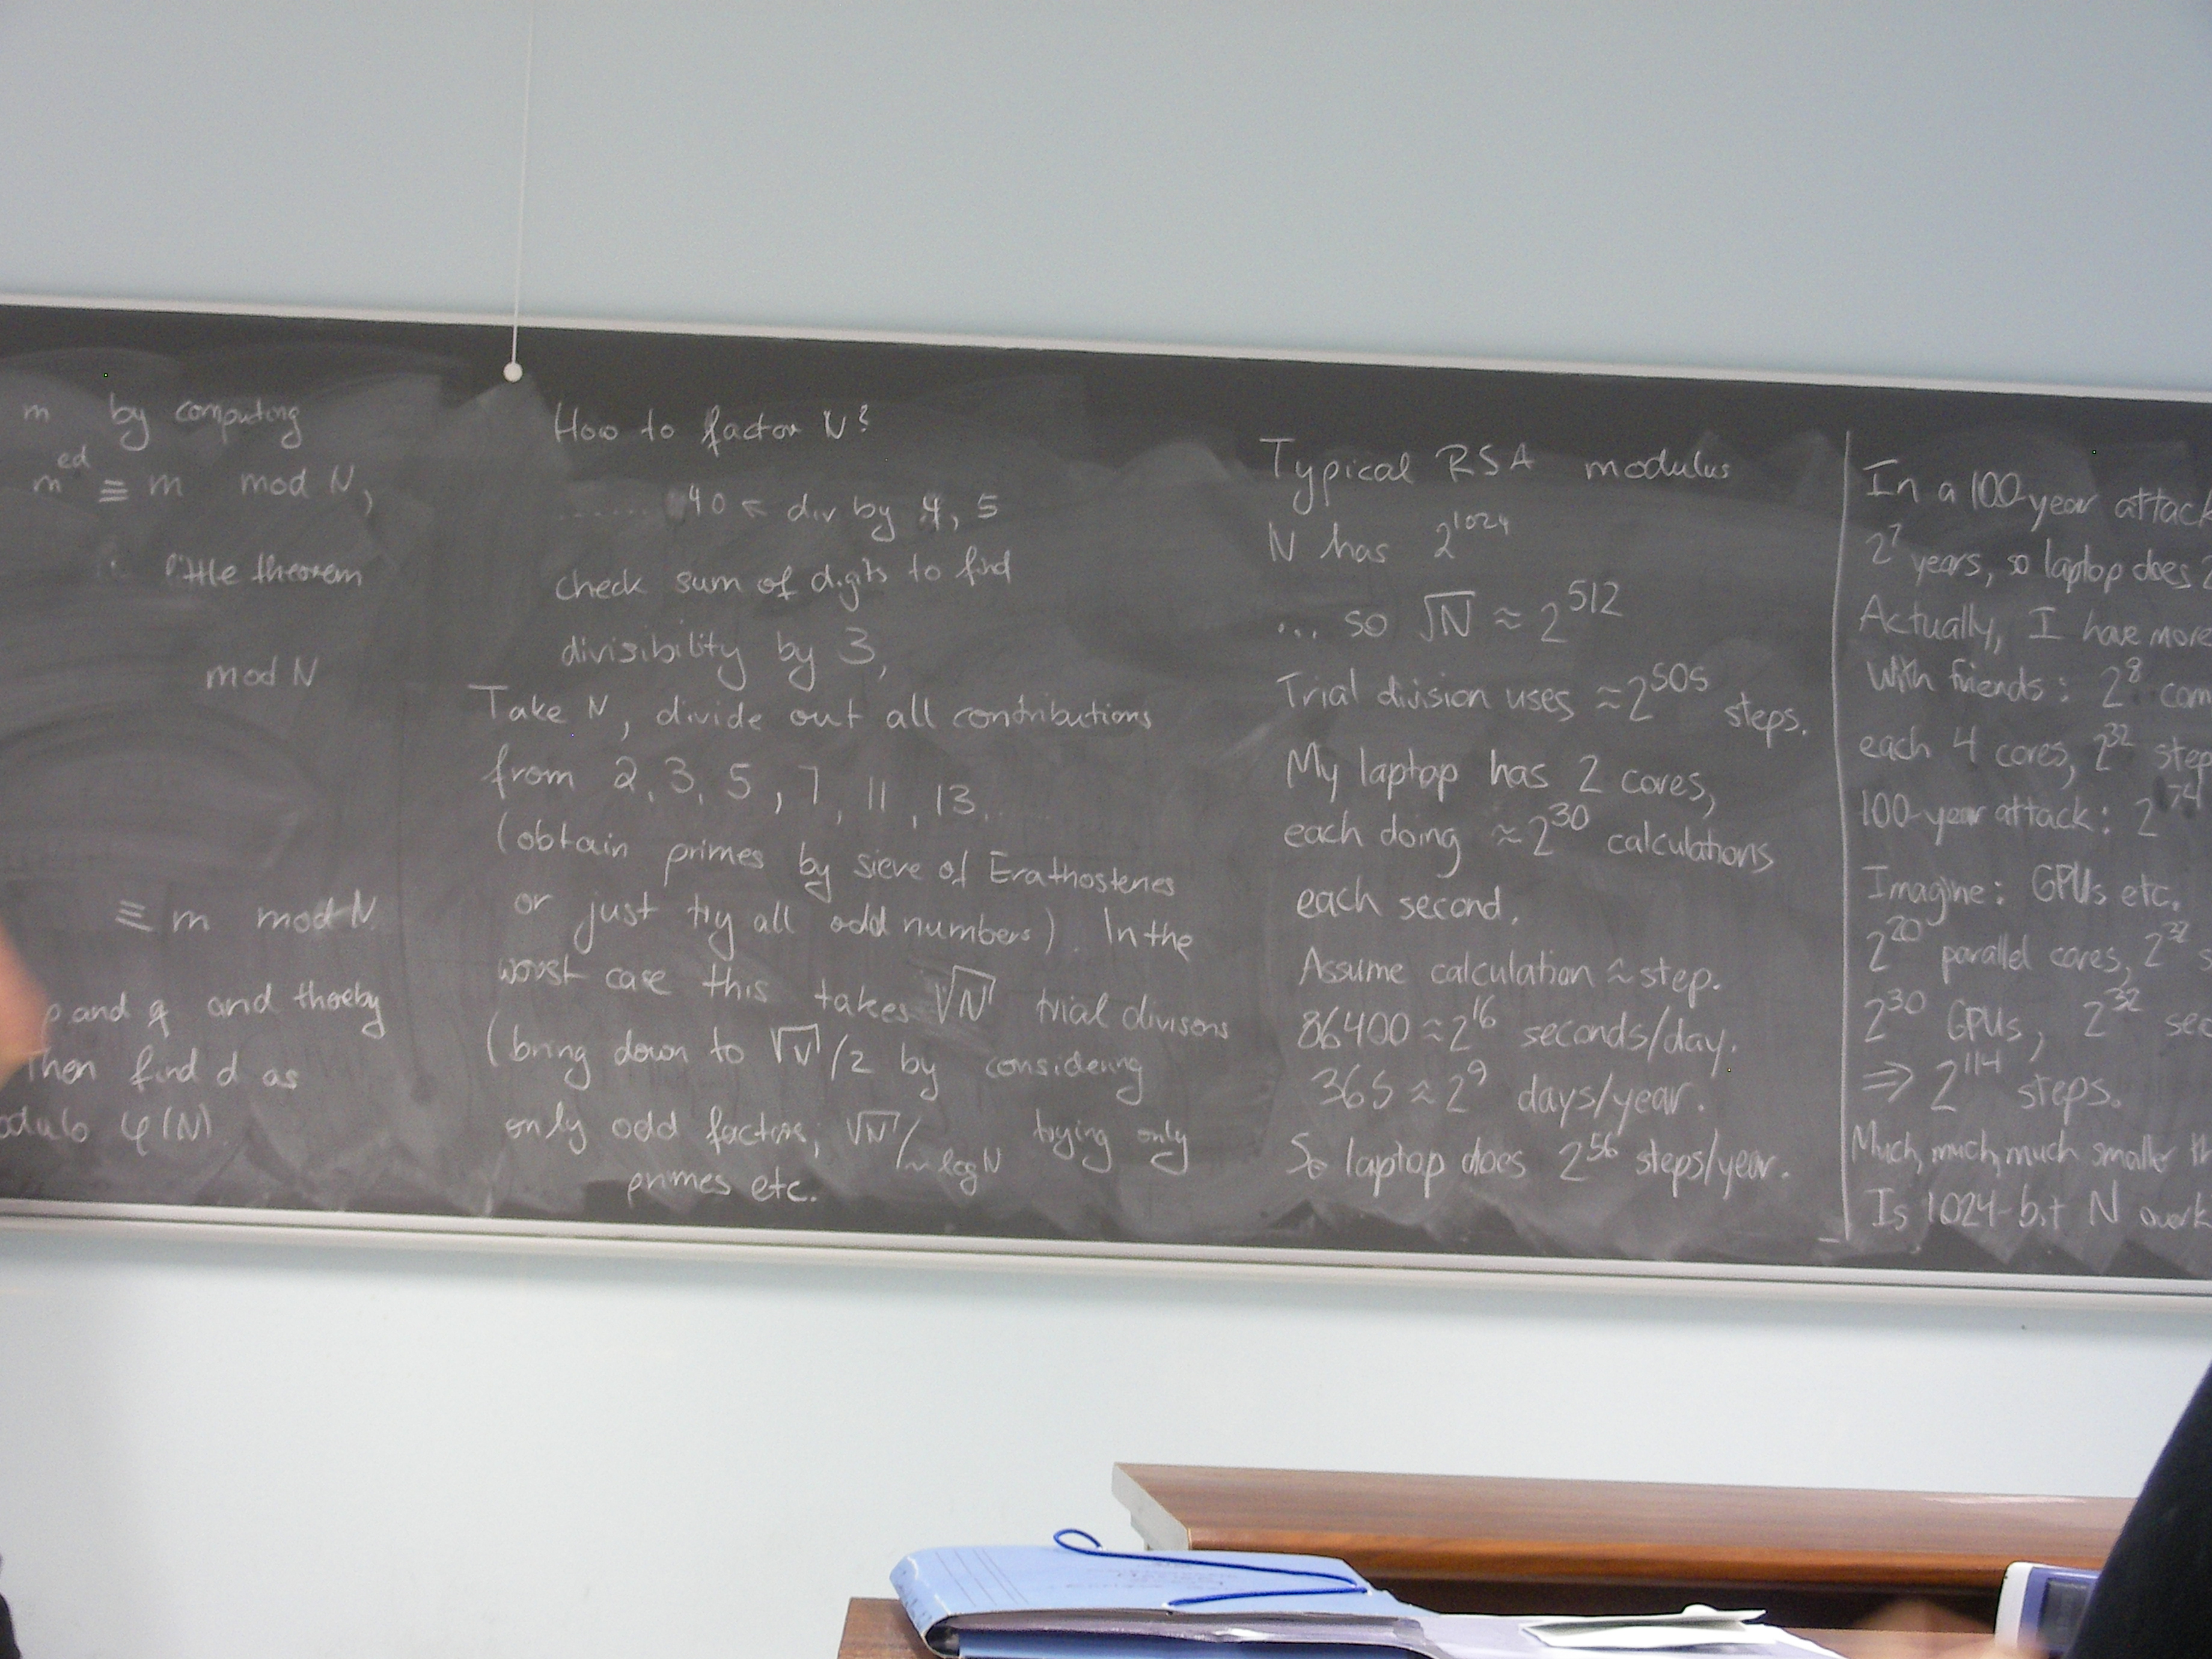 m by computing
m^ed ≡ m mod N,
little theorem
mod N
≡ m mod N.
p and q and thereby
then find d as
modulo φ(N)
How to factor N?
....... 40 ← div by 4, 5
check sum of digits to find
divisibility by 3,
Take N, divide out all contributions
from 2, 3, 5, 7, 11, 13, ...
(obtain primes by sieve of Erathostenes
or just try all odd numbers). In the
worst case this takes √N trial divisons
(bring down to √N/2 by considering
only odd factors, √N/~log N trying only
primes etc.
Typical RSA modulus
N has 2^1024
... so √N ≈ 2^512
Trial division uses ≈ 2^505 steps.
My laptop has 2 cores,
each doing ≈ 2^30 calculations
each second.
Assume calculation ≈ step.
86400 ≈ 2^16 seconds/day.
365 ≈ 2^9 days/year.
So laptop does 2^56 steps/year.
In a 100-year attack
2^7 years, so laptop does 2
Actually, I have more
With friends: 2^8 com
each 4 cores, 2^32 step
100-year attack: 2^74
Imagine: GPUs etc.
2^20 parallel cores, 2^32 s
2^30 GPUs, 2^32 sec
⇒ 2^114 steps.
Much, much, much smaller th
Is 1024-bit N overk